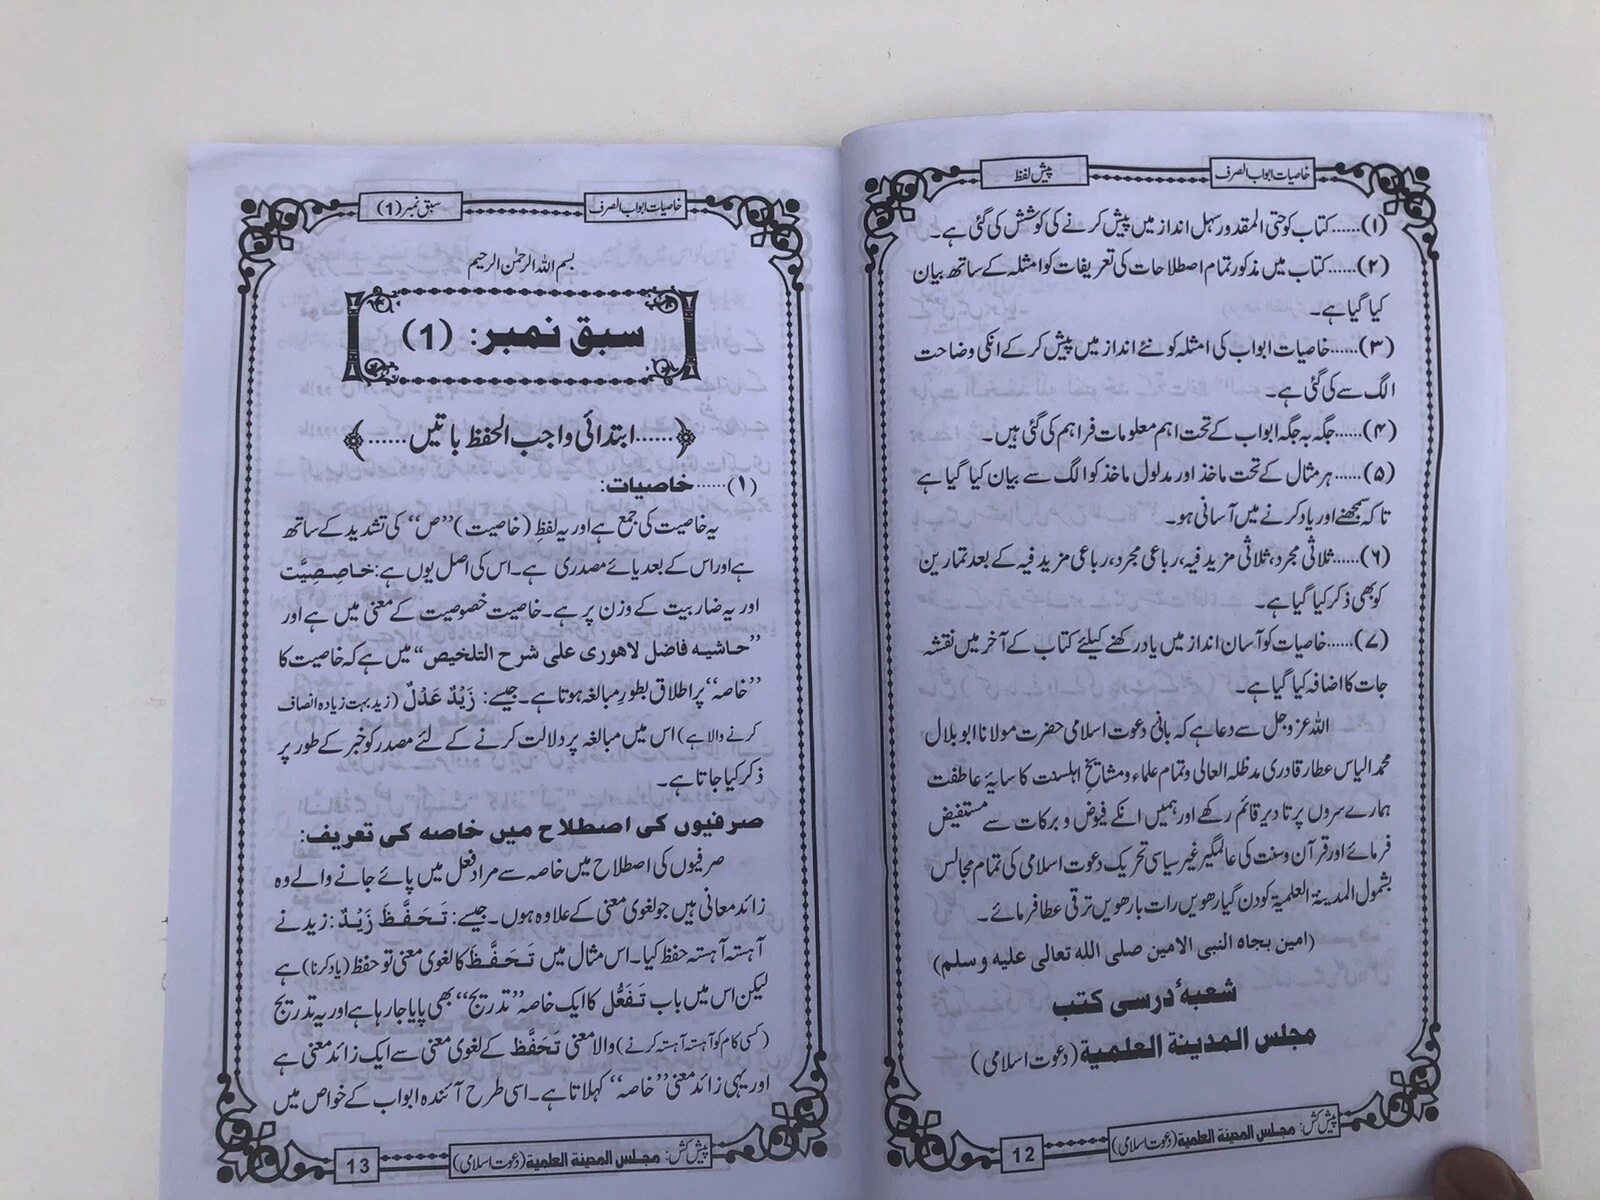 خاصیات ابواب الصرف
پیش لفظ
(۱)......کتاب کو حتی المقدور سہل انداز میں پیش کرنے کی کوشش کی گئی ہے۔
(۲)......کتاب میں مذکور تمام اصطلاحات کی تعریفات کو امثلہ کے ساتھ بیان
کیا گیا ہے۔
(۳)......خاصیات ابواب کی امثلہ کو نئے انداز میں پیش کر کے انکی وضاحت
الگ سے کی گئی ہے۔
(۴)......جگہ بہ جگہ ابواب کے تحت اہم معلومات فراہم کی گئی ہیں۔
(۵)......ہر مثال کے تحت ماخذ اور مدلول ماخذ کو الگ سے بیان کیا گیا ہے
تاکہ سمجھنے اور یاد کرنے میں آسانی ہو۔
(۶)......ثلاثی مجرد، ثلاثی مزید فیہ، رباعی مجرد، رباعی مزید فیہ کے بعد تمارین
کو بھی ذکر کیا گیا ہے۔
(۷)......خاصیات کو آسان انداز میں یاد رکھنے کیلئے کتاب کے آخر میں نقشہ
جات کا اضافہ کیا گیا ہے۔
اللہ عزوجل سے دعا ہے کہ بانی دعوت اسلامی حضرت مولانا ابو بلال
محمد الیاس عطار قادری مدظلہ العالی و تمام علماء و مشایخِ اہلسنت کا سایۂ عاطفت
ہمارے سروں پر تا دیر قائم رکھے اور ہمیں انکے فیوض و برکات سے مستفیض
فرمائے اور قرآن و سنت کی عالمگیر غیر سیاسی تحریک دعوت اسلامی کی تمام مجالس
بشمول المدینۃ العلمیۃ کو دن گیارھویں رات بارھویں ترقی عطا فرمائے۔
(امین بجاہ النبی الامین صلی اللہ تعالی علیہ وسلم)
شعبۂ درسی کتب
مجلس المدینۃ العلمیۃ (دعوت اسلامی)
پیش کش: مجلس المدینۃ العلمیۃ (دعوت اسلامی)
12
خاصیات ابواب الصرف
سبق نمبر (1)
بسم اللہ الرحمٰن الرحیم
سبق نمبر: (1)
......ابتدائی واجب الحفظ باتیں......
(۱)......خاصیات:
یہ خاصیت کی جمع ہے اور یہ لفظِ (خاصیت) ’’ص‘‘ کی تشدید کے ساتھ
ہے اور اس کے بعد یائے مصدری ہے۔ اس کی اصل یوں ہے: خَاصِصِیَّت
اور یہ ضاربیت کے وزن پر ہے۔ خاصیت خصوصیت کے معنی میں ہے اور
’’حاشیہ فاضل لاہوری علی شرح التلخیص‘‘ میں ہے کہ خاصیت کا
’’خاصہ‘‘ پر اطلاق بطورِ مبالغہ ہوتا ہے۔ جیسے: زَیْدٌ عَدْلٌ (زید بہت زیادہ انصاف
کرنے والا ہے) اس میں مبالغہ پر دلالت کرنے کے لئے مصدر کو خبر کے طور پر
ذکر کیا جاتا ہے۔
صرفیوں کی اصطلاح میں خاصہ کی تعریف:
صرفیوں کی اصطلاح میں خاصہ سے مراد فعل میں پائے جانے والے وہ
زائد معانی ہیں جو لغوی معنی کے علاوہ ہوں۔ جیسے: تَحَفَّظَ زَیْدٌ: زید نے
آہستہ آہستہ حفظ کیا۔ اس مثال میں تَحَفَّظَ کا لغوی معنی تو حفظ (یاد کرنا) ہے
لیکن اس میں باب تَفَعُّل کا ایک خاصہ ’’تدریج‘‘ بھی پایا جا رہا ہے اور یہ تدریج
(کسی کام کو آہستہ آہستہ کرنے) والا معنی تَحَفَّظَ کے لغوی معنی سے ایک زائد معنی ہے
اور یہی زائد معنی ’’خاصہ‘‘ کہلاتا ہے۔ اسی طرح آئندہ ابواب کے خواص میں
پیش کش: مجلس المدینۃ العلمیۃ (دعوت اسلامی)
13